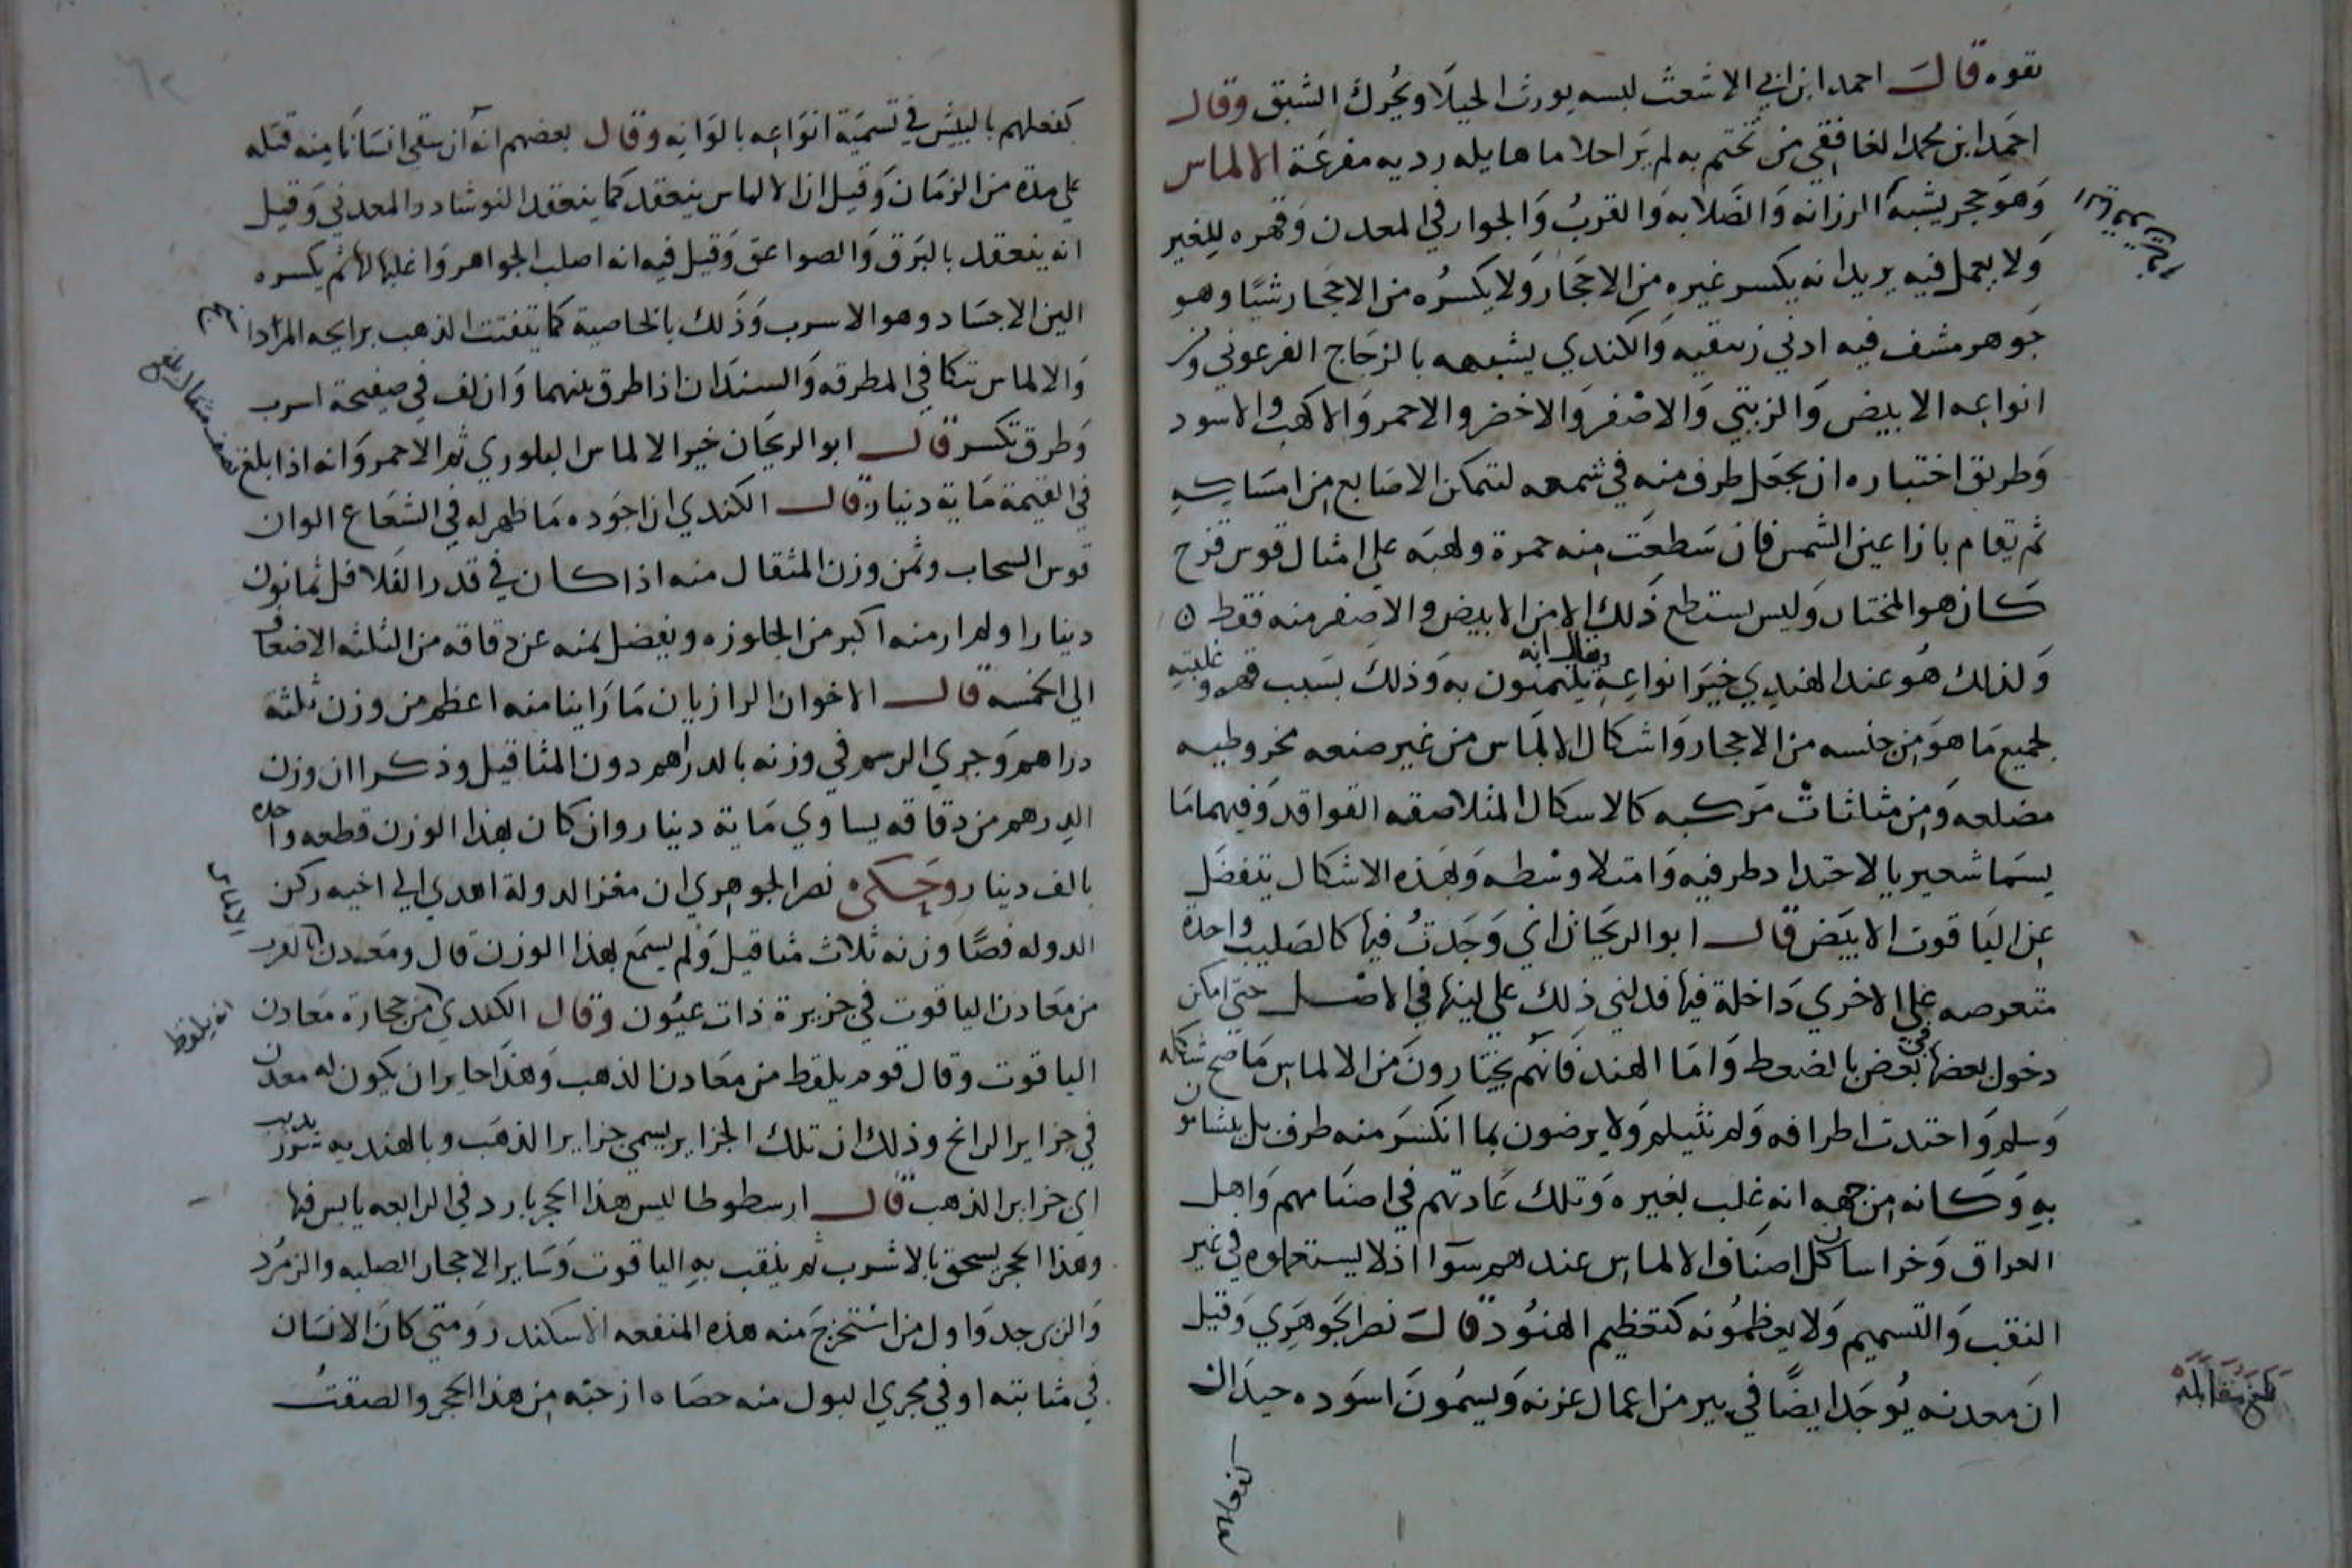 بقوه قال احمد ابن ابي الاشعث لبسه يورث الخيلا ويحرك الشبق وقال
احمد ابن محمد الغافقي من تختم به لم ير احلاما هايله رديه مفزعة الالماس
وهو حجر يشبه الرزانه والصلابه والقرب والجوار في المعدن وقهره للغير
ولا يعمل فيه يريد انه يكسر غيره من الاحجار ولا يكسره من الاحجار شيا وهو
جوهر مشف فيه ادني زيبقيه والكندي يشبهه بالزجاج الفرعوني ومن
انواعه الابيض والزيتي والاصفر والاخضر والاحمر والاكهب والاسود
وطريق اختباره ان يجعل طرف منه في شمعه لتتمكن الاصابع من امساكه
ثم يقام بازا عين الشمس فان سطعت منه حمرة ولهبه علي امثال قوس قزح
كان هو المختار وليس يستطع ذلك الا من الابيض والاصفر منه فقط
ولذلك هو عند الهندي خير انواعه ويقال انه يتيمنون به وذلك بسبب قهره وغلبته
لجميع ما هو من جنسه من الاحجار واشكال الالماس من غير صنعه مخروطيه
مضلعه ومن مثلثات مركبه كالاسكال المتلاصقه القواقد وفيهما ما
يسما شعيريا لاحتداد طرفيه وامتلا وسطه وبهذه الاشكال يتفضل
عن الياقوت الابيض قال ابو الريحان اني وجدت فيها كالصليب واحدة
متعرصه علي الاخري داخلة فيها فدلني ذلك علي لينها في الاصل حتي امكن
دخول بعضها في بعض بالضغط واما الهند فانهم يختارون من الالماس ما صح شكله
وسلم واحتدت اطرافه ولم تثيلم ولا يرضون بما انكسر منه طرف بل يتشامون
به وكانه من جهه انه غلب لغيره وتلك عادتهم في اصنامهم واهل
العراق وخراسان كل اصناف الالماس عندهم سوا اذ لا يستعملوه في غير
النقب والتسميم ولا يعظمونه كتعظيم الهنود قال نصر الجوهري وقيل
ان معدنه يوجد ايضا في بير من اعمال غزنه ويسمون اسوده حيدان
بلغ مقابلة
كفعلهم بالبيش في تسمية انواعه بالوانه وقال بعضهم انه ان سقي انسانا منه قتله
علي مدة من الزمان وقيل ان الالماس ينعقد كما ينعقد النوشادر المعدني وقيل
انه ينعقد بالبرق والصواعق وقيل فيه انه اصلب الجواهر واغلبها لها ثم يكسره
الين الاجساد وهو الاسرب وذلك بالخاصية كما يتفتت الذهب برايحه المرادا
والالماس يتكا في المطرقه والسندان اذا طرق بينهما وان لف في صفيحة اسرب
وطرق تكسر قال ابو الريحان خير الالماس البلوري ثم الاحمر وانه اذا بلغ نصف مثقال بلغ
في القيمة ماية دينار قال الكندي ان اجوده ما ظهر له في الشعاع الوان
قوس السحاب وثمن وزن المثقال منه اذا كان في قدر الفلافل ثمانون
دينارا ولم ار منه اكبر من الجلوزه ويفضل ثمنه عن دقاقه من الثلثه الاضعاف
الي الخمسه قال الاخوان الرازيان ما راينا منه اعظم من وزن ثلثة
دراهم وجري الرسم في وزنه بالدراهم دون المثاقيل وذكرا ان وزن
الدرهم من دقاقه يساوي ماية دينار وان كان بهذا الوزن قطعه واحده
بالف دينار وحكي نصر الجوهري ان معز الدولة اهدي الي اخيه ركن
الدوله فصا وزنه ثلاث مثاقيل ولم يسمع بهذا الوزن قال ومعدن الالماس بالقرب
من معادن الياقوت في جزيرة ذات عيون وقال الكندي من حجارة معادن
الياقوت وقال قوم انه يلقط من معادن الذهب وهذا جايز ان يكون له معدن
في جزاير الرانج وذلك ان تلك الجزاير يسمي جزاير الذهب وبالهنديه
اي جزاير الذهب قال ارسطوطاليس هذا الحجر بارد في الرابعه يابس فيها
وهذا الحجر يسحق بالاسرب ثم يثقب به الياقوت وساير الاحجار الصلبه والزمرد
والزبرجد واول من استخرج منه هذه المنفعه الاسكندر ومتي كان الانسان
في مثانته او في مجري البول منه حصاه اخذ حبه من هذا الحجر والصقت